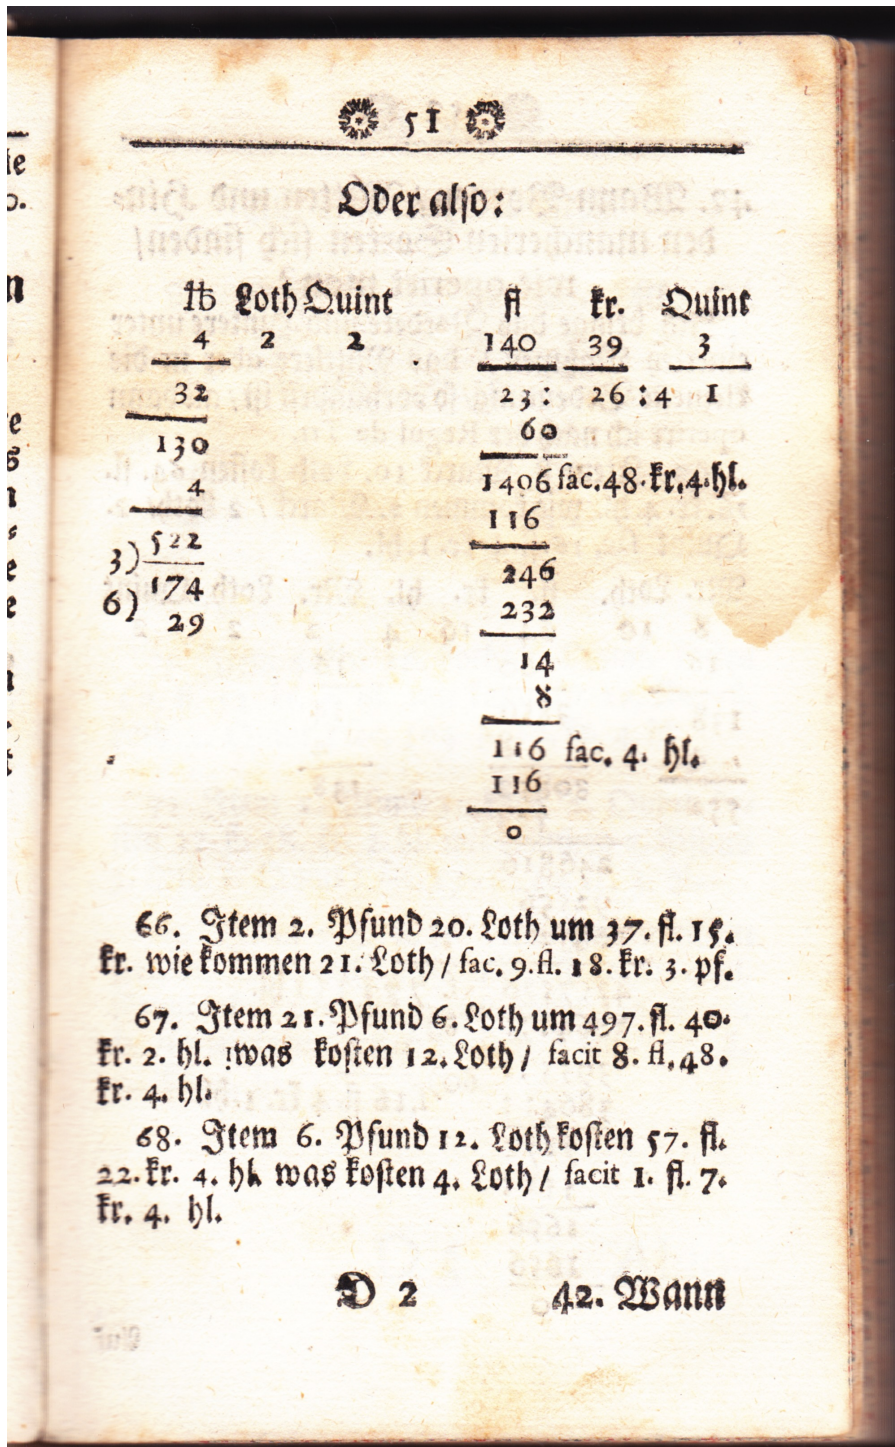 51
Oder also:
℔ Loth Quint fl kr. Quint
4 2 2 140 39 3
32 23: 26:4 1
130 60
4 1406 fac. 48. kr. 4. hl.
522 116
3) 174 246
6) 29 232
14
8
116 fac. 4. hl.
116
0
66. Item 2. Pfund 20. Loth um 37. fl. 15.
kr. wie kommen 21. Loth / fac. 9. fl. 18. kr. 3. pf.
67. Item 21. Pfund 6. Loth um 497. fl. 40.
kr. 2. hl. was kosten 12. Loth / facit 8. fl. 48.
kr. 4. hl.
68. Item 6. Pfund 12. Loth kosten 57. fl.
22. kr. 4. hl. was kosten 4. Loth / facit 1. fl. 7.
kr. 4. hl.
D 2 42. Wann